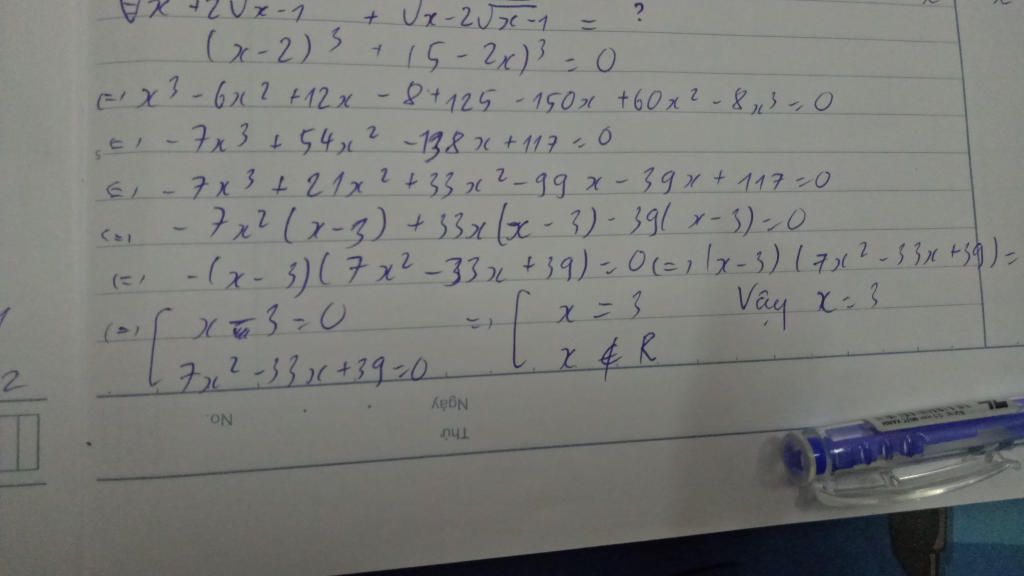 √x+2√x-1 + √x-2√x-1 = ?
(x-2)³ + (5-2x)³ = 0
(=) x³ - 6x² + 12x - 8 + 125 - 150x + 60x² - 8x³ = 0
(=) -7x³ + 54x² - 138x + 117 = 0
(=) -7x³ + 21x² + 33x² - 99x - 39x + 117 = 0
(=) -7x²(x-3) + 33x(x-3) - 39(x-3) = 0
(=) -(x-3)(7x² - 33x + 39) = 0 (=) (x-3)(7x² - 33x + 39) =
(=) [ x - 3 = 0 =) [ x = 3 Vậy x = 3
7x² - 33x + 39 = 0 x ∉ R
2
No.
Ngày
Thứ